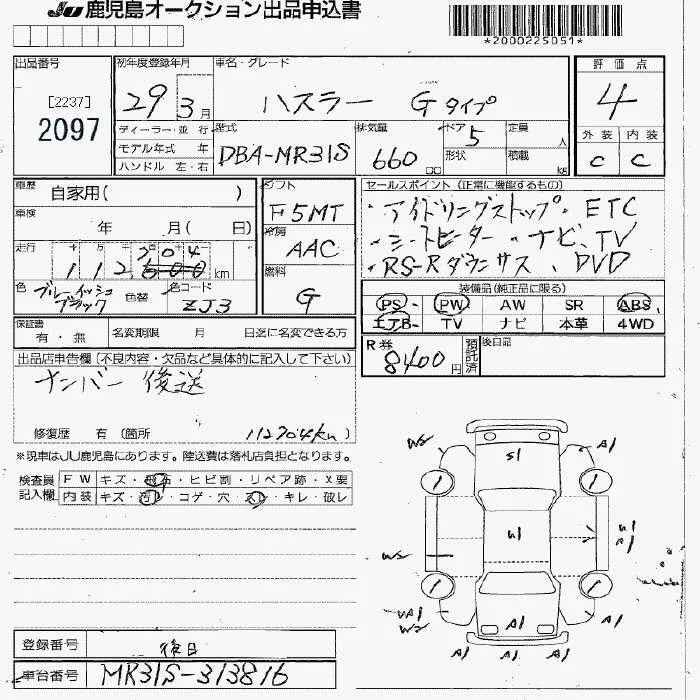 JU 鹿児島オークション出品申込書
*2000225051*
出品番号 初年度登録年月 車名・グレード 評価点
[2237]
2097
29 3月
ハスラー Gタイプ
4
ディーラー・並行
モデル年式 年
ハンドル 左・右
型式 排気量 ドア 定員 人
DBA-MR31S 660 cc 5
形状 積載 kg
外装 内装
C C
車歴 自家用( )
車検 年 月( 日)
走行 十 万 千 百 十 一
704
112,500 km
色 ブルーイッシュブラック 色替 色コード ZJ3
シフト F5MT
冷房 AAC
燃料 G
セールスポイント(正常に機能するもの)
・アイドリングストップ・ETC
・シートヒーター・ナビ、TV
・RS-Rダウンサス、DVD
装備品(純正品に限る)
PS PW AW SR ABS
エアB TV ナビ 本革 4WD
保証書 有・無 名変期限 月 日迄に名変できる方
R券 8400円 預託済 後日品
出品店申告欄(不良内容・欠品など具体的に記入して下さい)
ナンバー後送
修復歴 有(箇所 112704km)
※現車はJU鹿児島にあります。陸送費は落札店負担となります。
検査員記入欄
FW キズ・飛石・ヒビ割・リペア跡・X要
内装 キズ・汚レ・コゲ・穴・スレ・キレ・破レ
W2 A1
S1
U1
U1
A1
W2
UA1
W2
A1
A1
A1 A1 A1
登録番号 後日
車台番号 MR31S-313816